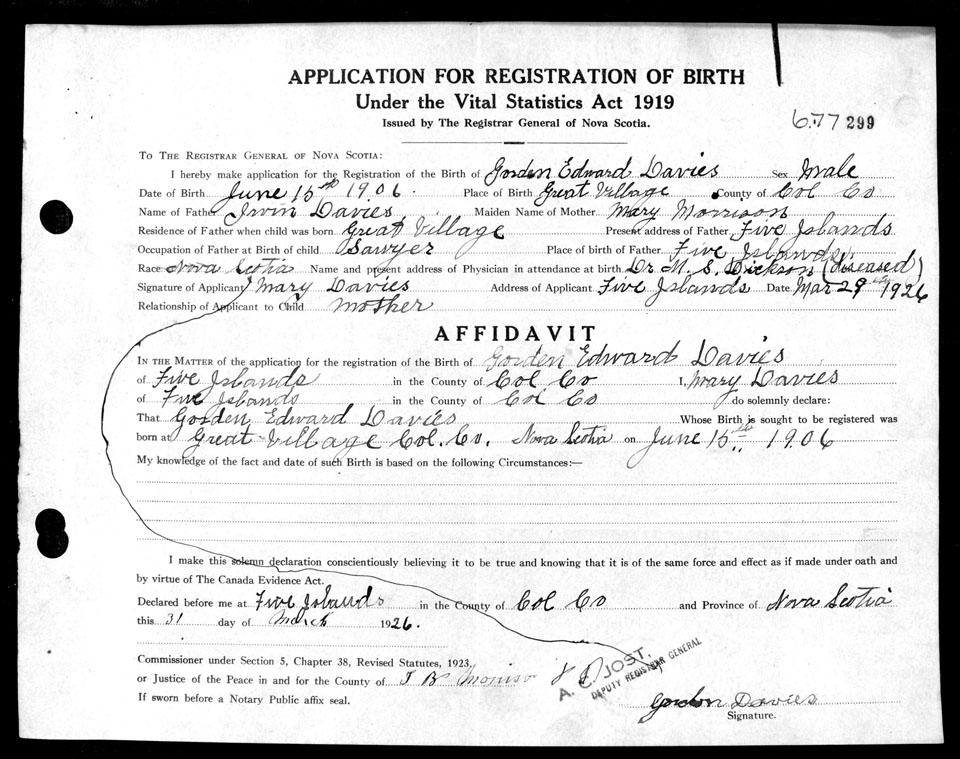 APPLICATION FOR REGISTRATION OF BIRTH
Under the Vital Statistics Act 1919
Issued by The Registrar General of Nova Scotia.
677 299
TO THE REGISTRAR GENERAL OF NOVA SCOTIA:
I hereby make application for the Registration of the Birth of Gorden Edward Davies Sex Male
Date of Birth June 15th 1906. Place of Birth Great Village County of Col Co
Name of Father Irvin Davies Maiden Name of Mother Mary Morrison
Residence of Father when child was born Great Village Present address of Father Five Islands
Occupation of Father at Birth of child Sawyer Place of birth of Father Five Islands
Race Nova Scotia Name and present address of Physician in attendance at birth Dr. M. S. Dickson (diseased)
Signature of Applicant Mary Davies Address of Applicant Five Islands Date Mar 29th 1926
Relationship of Applicant to Child mother
AFFIDAVIT
IN THE MATTER of the application for the registration of the Birth of Gorden Edward Davies
of Five Islands in the County of Col Co I, Mary Davies
of Five Islands in the County of Col Co do solemnly declare:
That Gorden Edward Davies Whose Birth is sought to be registered was
born at Great Village Col. Co. Nova Scotia on June 15th 1906
My knowledge of the fact and date of such Birth is based on the following Circumstances:—
I make this solemn declaration conscientiously believing it to be true and knowing that it is of the same force and effect as if made under oath and
by virtue of The Canada Evidence Act.
Declared before me at Five Islands in the County of Col Co and Province of Nova Scotia
this 31 day of March 1926.
Commissioner under Section 5, Chapter 38, Revised Statutes, 1923,
or Justice of the Peace in and for the County of J B Morrison J P
A. C. JOST,
DEPUTY REGISTRAR GENERAL
If sworn before a Notary Public affix seal.
Gordon Davies
Signature.